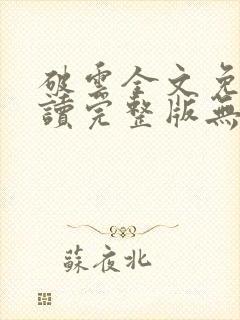 破雲全文免
讀完整版無
蘇夜北